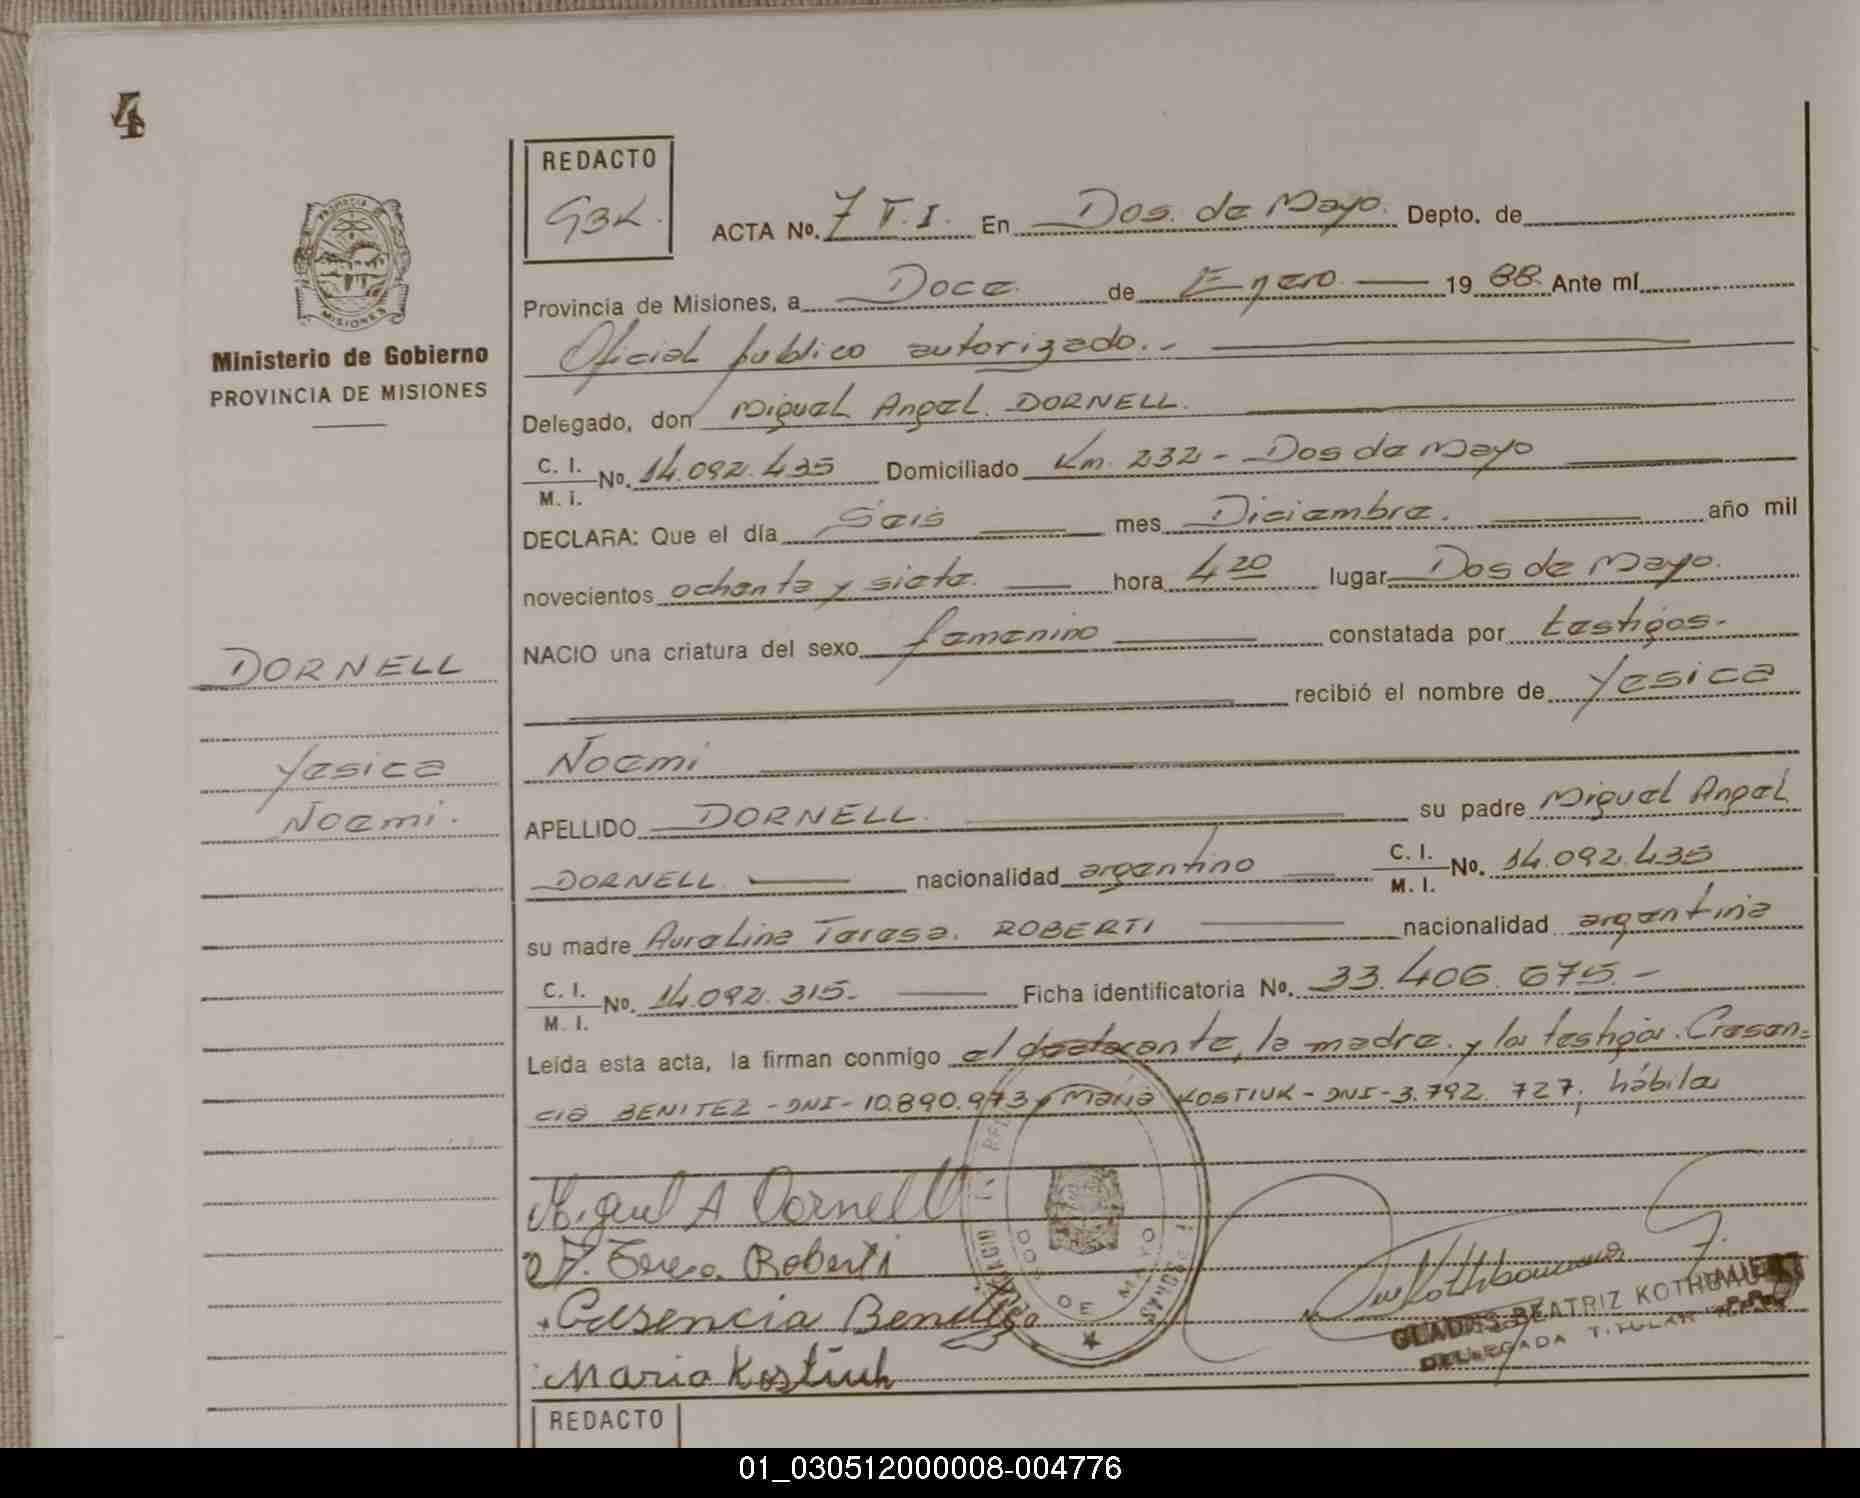 4
REDACTO
GBK.
ACTA No. 7 T.I. En Dos de Mayo. Depto. de
Provincia de Misiones, a Doce de Enero 19 88 Ante mí
Oficial publico autorizado.-
Delegado, don Miguel Angel DORNELL.
C. I.
M. I. No. 14.092.435 Domiciliado Km. 232 - Dos de Mayo
DECLARA: Que el día Seis mes Diciembre. año mil
novecientos ochenta y siete. hora 4 20 lugar Dos de Mayo.
NACIO una criatura del sexo femenino constatada por testigos.
recibió el nombre de Yesica
Noemi
APELLIDO DORNELL. su padre Miguel Angel
DORNELL nacionalidad argentino C. I.
M. I. No. 14.092.435
su madre Aurelina Teresa. ROBERTI nacionalidad argentina
C. I.
M. I. No. 14.092.315.- Ficha identificatoria No. 33.406.675.-
Leída esta acta, la firman conmigo el declarante, la madre. y los testigos. Cresen=
cia BENITEZ - DNI - 10.890.973 y Maria KOSTIUK - DNI - 3.792.727, hábiles
Miguel A Dornell
A. Teresa Roberti
Cresencia Benitez
Maria Kostiuk
DOS DE MAYO
GLADIS BEATRIZ
DELEGADA TITULAR
Ministerio de Gobierno
PROVINCIA DE MISIONES
DORNELL
Yesica
Noemi.
REDACTO
01_030512000008-004776